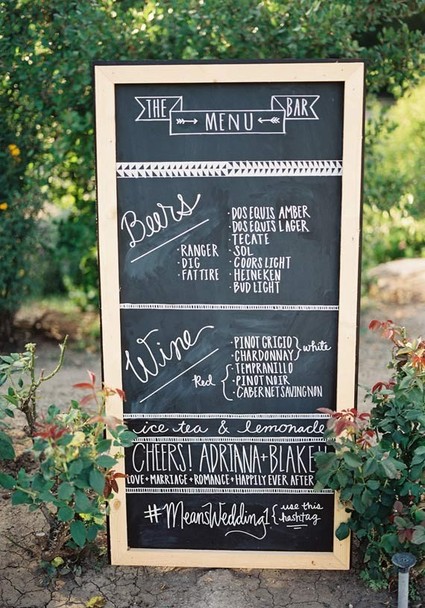 THE BAR
MENU
Beers
· RANGER
· DIG
· FAT TIRE
· DOS EQUIS AMBER
· DOS EQUIS LAGER
· TECATE
· SOL
· COORS LIGHT
· HEINEKEN
· BUD LIGHT
Wine
· PINOT GRIGIO
· CHARDONNAY } white
Red { · TEMPRANILLO
· PINOT NOIR
· CABERNET SAVINGNON
ice tea & lemonade
CHEERS! ADRIANA + BLAKE
LOVE + MARRIAGE + ROMANCE + HAPPILY EVER AFTER
#MeansWedding1 { use this
hashtag